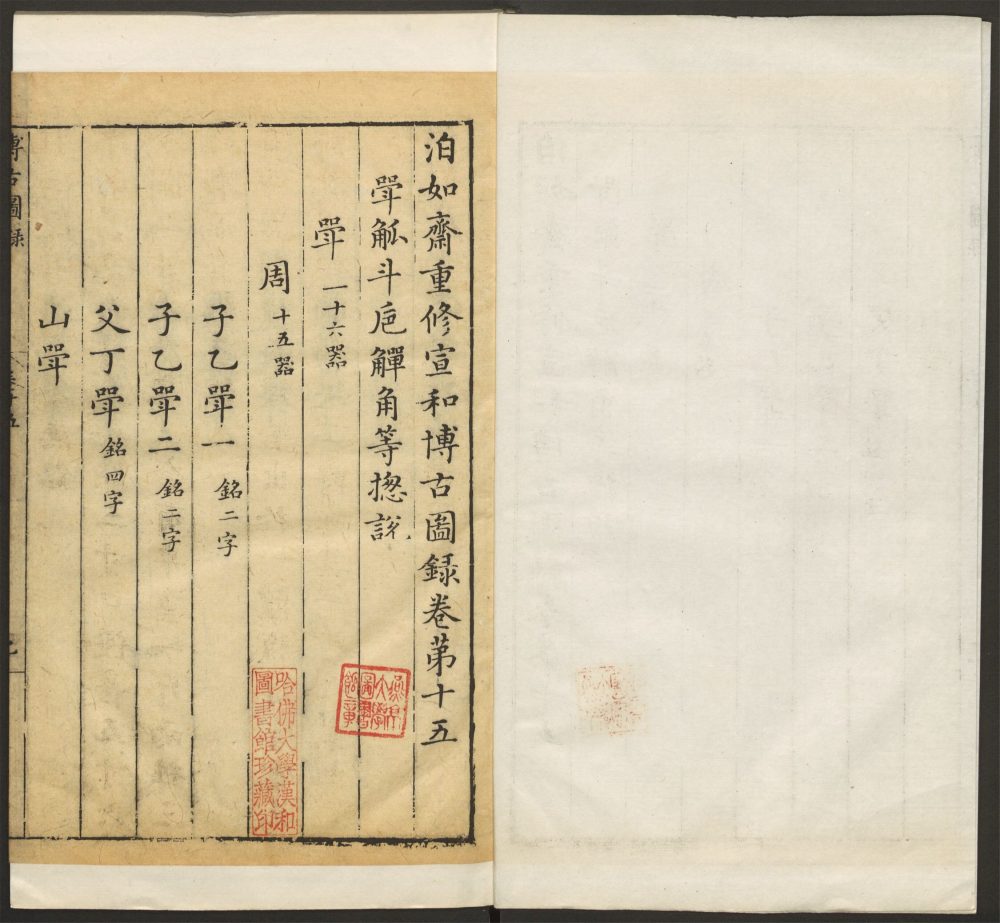 泊如齋重修宣和博古圖録卷第十五
斝觚斗巵觶角等揔說
斝 一十六器
周 十五器
子乙斝一 銘二字
子乙斝二 銘二字
父丁斝 銘四字
山斝
博古圖録
燕京大學圖書館章
哈佛大學漢和圖書館珍藏印